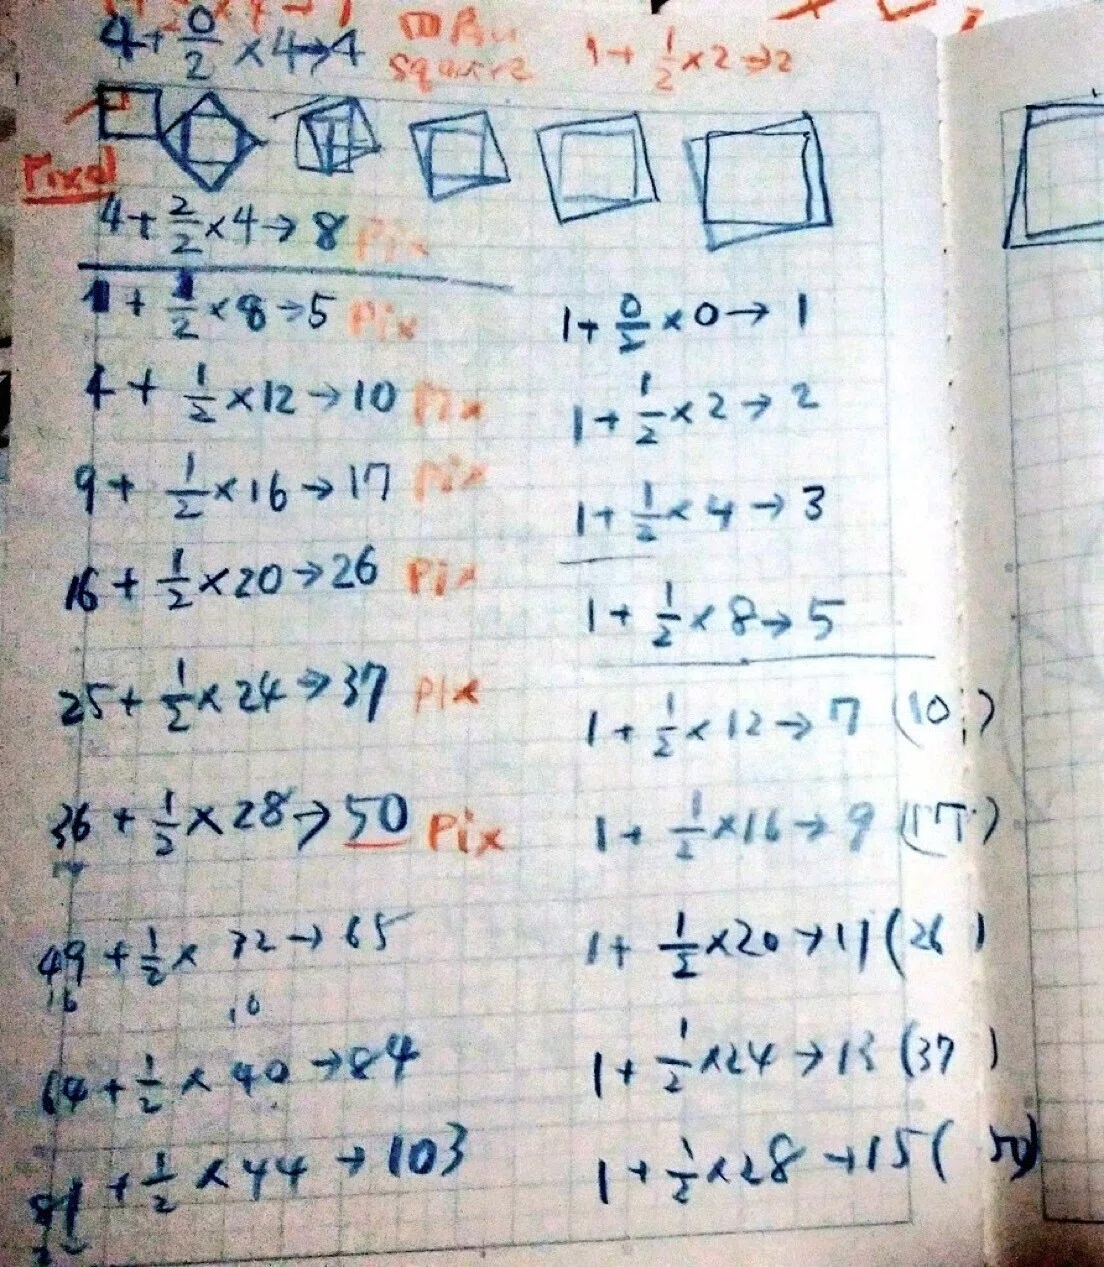 4 + 0/2 × 4 → 4
square
1 + 1/2 × 2 → 2
Pixel
4 + 2/2 × 4 → 8 Pix
1 + 1/2 × 8 → 5 Pix
4 + 1/2 × 12 → 10 Pix
9 + 1/2 × 16 → 17 Pix
16 + 1/2 × 20 → 26 Pix
25 + 1/2 × 24 → 37 Pix
36 + 1/2 × 28 → 50 Pix
49 + 1/2 × 32 → 65
16
64 + 1/2 × 40 → 84
81 + 1/2 × 44 → 103
1 + 0/2 × 0 → 1
1 + 1/2 × 2 → 2
1 + 1/2 × 4 → 3
1 + 1/2 × 8 → 5
1 + 1/2 × 12 → 7 (10)
1 + 1/2 × 16 → 9 (17)
1 + 1/2 × 20 → 11 (26)
1 + 1/2 × 24 → 13 (37)
1 + 1/2 × 28 → 15 (50)